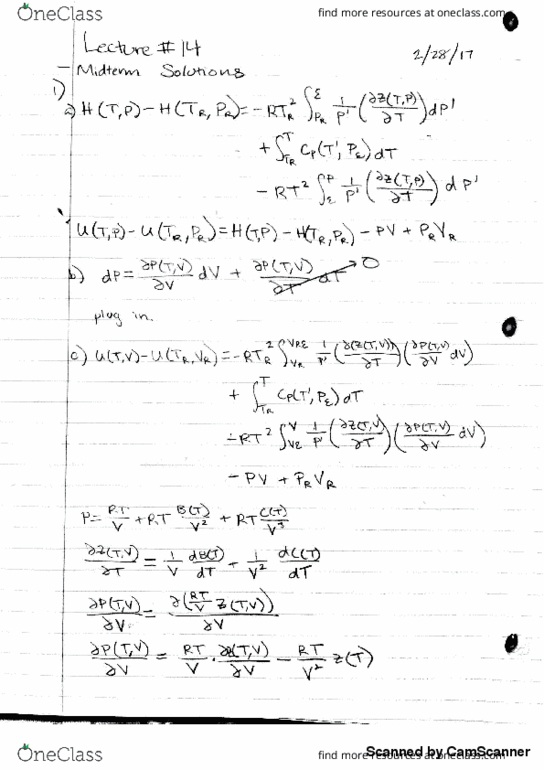 OneClass find more resources at oneclass.com
Lecture #14
2/28/17
- Midterm Solutions
1)
a) H(T,P) - H(T_R, P_R) = -RT_R^2 ∫_{P_R}^{ε} 1/P' (∂Z(T,P)/∂T) dP'
+ ∫_{T_R}^{T} C_P(T', P_ε) dT
- RT^2 ∫_{ε}^{P} 1/P' (∂Z(T,P)/∂T) dP'
U(T,P) - U(T_R, P_R) = H(T,P) - H(T_R, P_R) - PV + P_R V_R
b) dP = ∂P(T,V)/∂V dV + ∂P(T,V)/∂T dT → 0
plug in.
c) U(T,V) - U(T_R, V_R) = -RT_R^2 ∫_{V_R}^{V_{Rε}} 1/P' (∂(Z(T,V))/∂T) (∂P(T,V)/∂V dV)
+ ∫_{T_R}^{T} C_P(T', P_ε) dT
- RT^2 ∫_{V_ε}^{V} 1/P' (∂Z(T,V)/∂T) (∂P(T,V)/∂V dV)
- PV + P_R V_R
P = RT/V + RT B(T)/V^2 + RT C(T)/V^3
∂Z(T,V)/∂T = 1/V dB(T)/dT + 1/V^2 dC(T)/dT
∂P(T,V)/∂V = ∂(RT/V Z(T,V))/∂V
∂P(T,V)/∂V = RT/V · ∂Z(T,V)/∂V - RT/V^2 Z(T)
OneClass find more resources at oneclass.com
Scanned by CamScanner